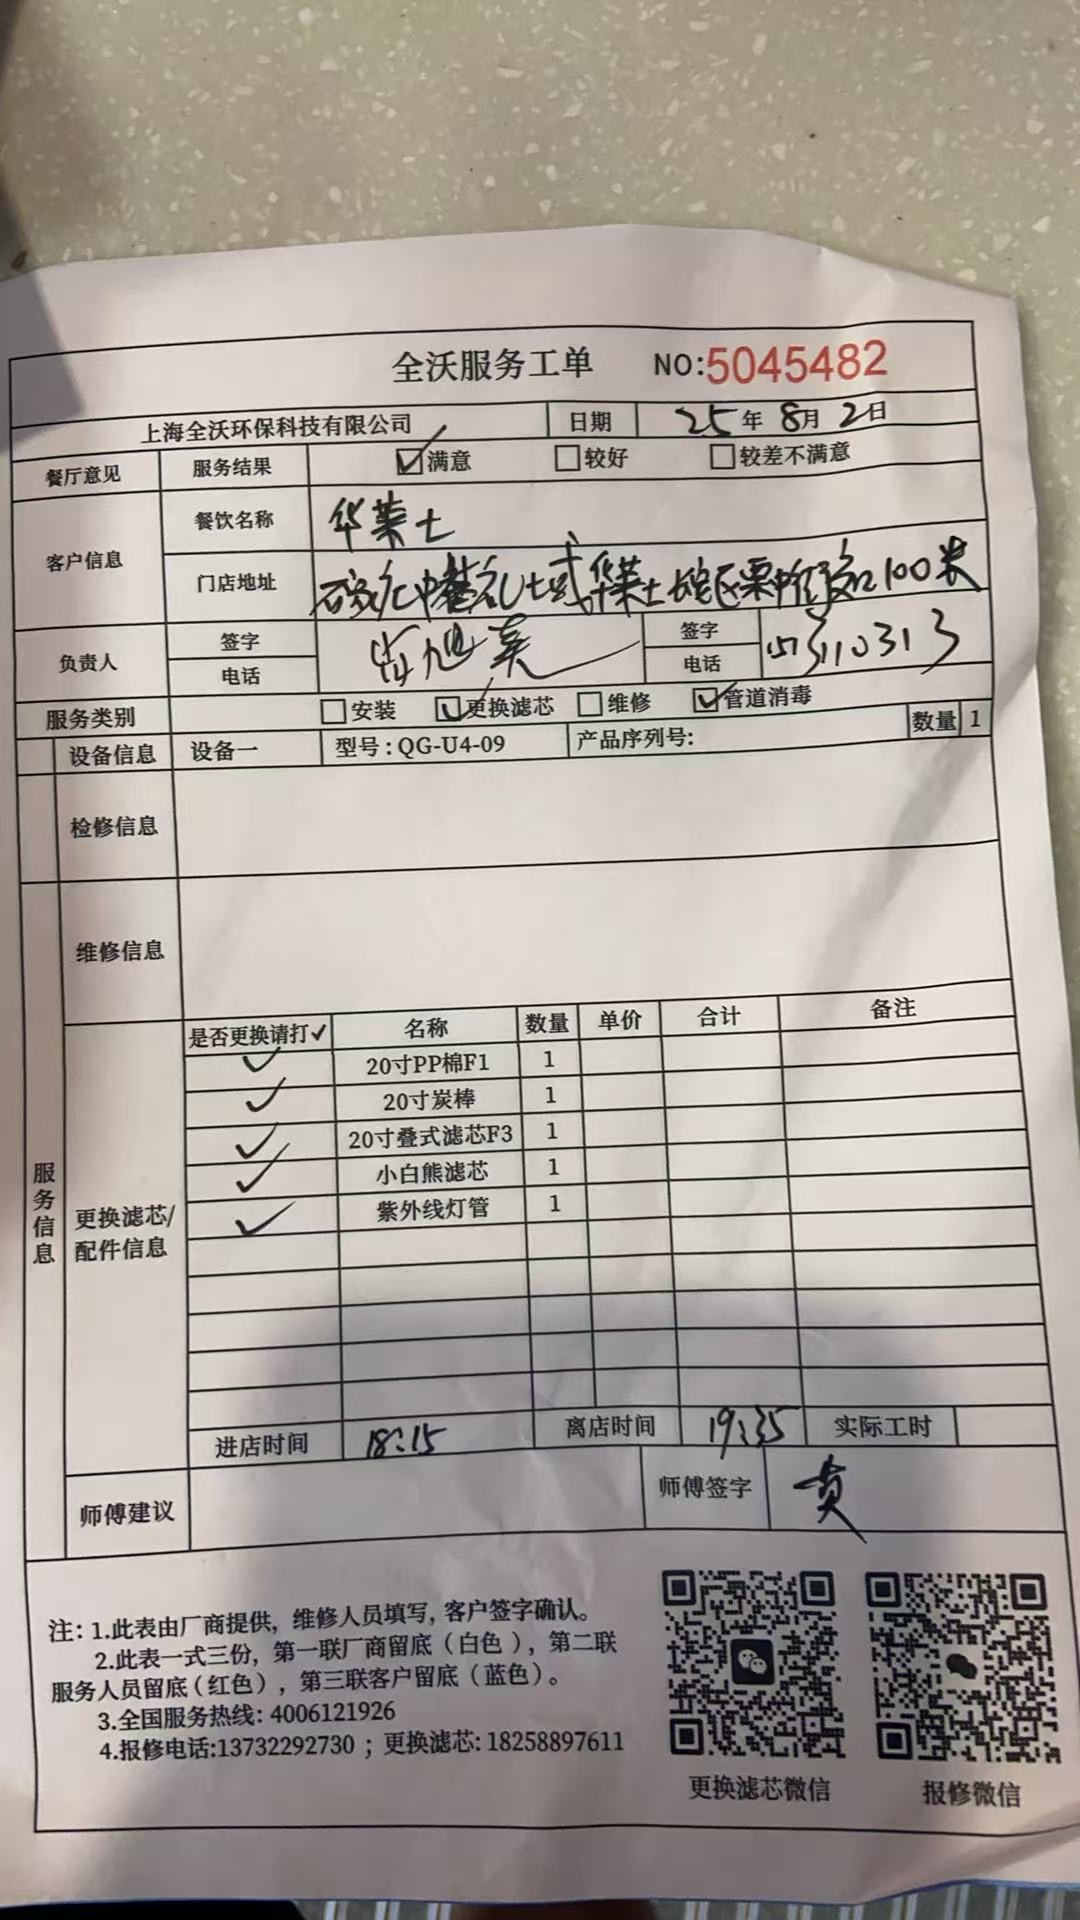 全沃服务工单 NO:5045482
上海全沃环保科技有限公司 日期 25年8月2日
餐厅意见 服务结果 满意 较好 较差不满意
客户信息 餐饮名称 华莱士
门店地址 华莱士 100米
负责人 签字 签字
电话 电话
服务类别 安装 更换滤芯 维修 管道消毒
设备信息 设备一 型号:QG-U4-09 产品序列号: 数量 1
检修信息
维修信息
是否更换请打✓ 名称 数量 单价 合计 备注
✓ 20寸PP棉F1 1
✓ 20寸炭棒 1
✓ 20寸叠式滤芯F3 1
✓ 小白熊滤芯 1
✓ 紫外线灯管 1
服务信息
更换滤芯/
配件信息
进店时间 18:15 离店时间 19:35 实际工时
师傅建议 师傅签字 黄
注: 1.此表由厂商提供, 维修人员填写, 客户签字确认。
2.此表一式三份, 第一联厂商留底(白色), 第二联
服务人员留底(红色), 第三联客户留底(蓝色)。
3.全国服务热线: 4006121926
4.报修电话:13732292730 ; 更换滤芯: 18258897611
更换滤芯微信 报修微信